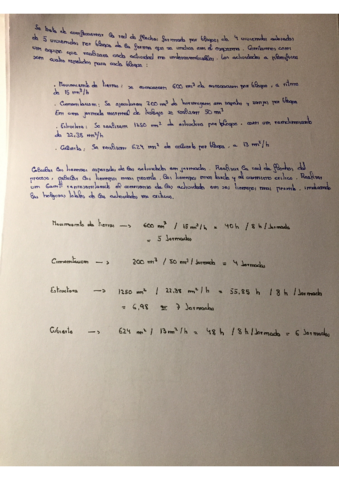 Se trata de confeccionar la red de flechas formada por bloques de 4 viviendas adosadas
de 3 viviendas por bloque de la forma que se indica en el esquema. Contamos con
un equipo que realizará cada actividad no
son cuatro repetidas para cada bloque:
. Movimiento de tierras: se excavarán 600 m³ de excavación por bloque, a ritmo
de 15 m³/h
. Cimentación: Se ejecutarán 200 m³ de hormigón en zapatas y zanjas por bloque
En una jornada normal de trabajo se realizan 50 m³
. Estructura: Se realizan 1250 m² de estructura por bloque, con un rendimiento
de 22,38 m²/h
. Cubierta: Se realizan 624 m² de cubierta por bloque, a 13 m²/h
Calcular los tiempos esperados de las actividades en jornadas. Realizar la red de flechas del
proceso, calcular los tiempos más pronto, los tiempos más tarde y el camino crítico. Realizar
un Gantt representando el comienzo de las actividades en sus tiempos más pronto, indicando
las holguras totales de las actividades no críticas.
Movimiento de tierras —> 600 m³ / 15 m³/h = 40 h / 8 h / Jornada
= 5 Jornadas
Cimentación —> 200 m³ / 50 m³ / Jornada = 4 Jornadas
Estructura —> 1250 m² / 22,38 m²/h = 55,85 h / 8 h / Jornada
= 6,98 ≈ 7 Jornadas
Cubierta —> 624 m² / 13 m²/h = 48 h / 8 h / Jornada = 6 Jornadas